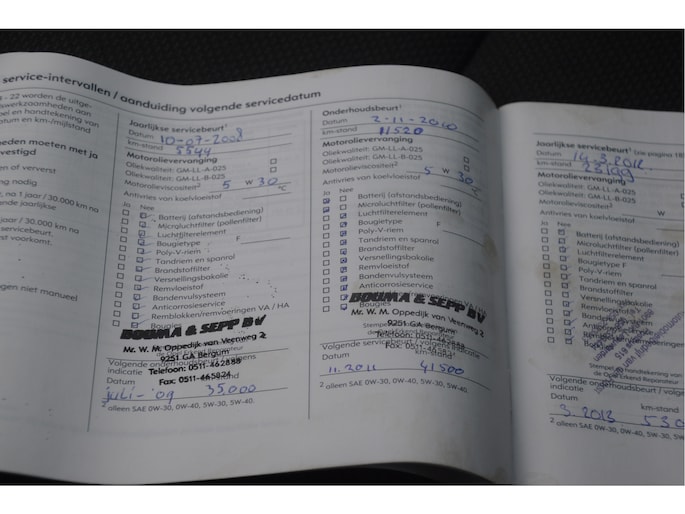 service-intervallen / aanduiding volgende servicedatum
- 22 worden de uitge-
swerkzaamheden aan
pel en handtekening van
atum en km-/mijlstand
heden moeten met ja
vestigd
en of ververst
ng nodig
, na 1 jaar / 30.000 km na
jaar / 30.000 km na
servicebeurt.
st voorkomt.
gen niet manueel
Jaarlijkse servicebeurt¹
Datum 10-07-2008
km-stand 5544
Motorolieverversing
Oliekwaliteit: GM-LL-A-025
Oliekwaliteit: GM-LL-B-025
Motorolieviscositeit² 5 W 30
Antivries van koelvloeistof °C
Ja Nee
Batterij (afstandsbediening)
Microluchtfilter (pollenfilter)
Luchtfilterelement
Bougietype F
Poly-V-riem
Tandriem en spanrol
Brandstoffilter
Versnellingsbakolie
Remvloeistof
Bandenvulsysteem
Anticorrosieservice
Remblokken/remvoeringen VA / HA
Bougies
BOUMA & SEPP BV
Mr. W. M. Oppedijk van Veenweg 2
9251 GA Bergum
Telefoon: 0511-462888
Fax: 0511-465824
Volgende
indicatie
Datum
juli - 09 35.000
² alleen SAE 0W-30, 0W-40, 5W-30, 5W-40.
Onderhoudsbeurt¹
Datum 2-11-2010
km-stand 11520
Motorolieverversing
Oliekwaliteit: GM-LL-A-025
Oliekwaliteit: GM-LL-B-025
Motorolieviscositeit² 5 W 30
Antivries van koelvloeistof °C
Ja Nee
Batterij (afstandsbediening)
Microluchtfilter (pollenfilter)
Luchtfilterelement
Bougietype F
Poly-V-riem
Tandriem en spanrol
Brandstoffilter
Versnellingsbakolie
Remvloeistof
Bandenvulsysteem
Anticorrosieservice
Bougies
BOUMA & SEPP BV
Mr. W. M. Oppedijk van Veenweg 2
9251 GA Bergum
Telefoon: 0511-462888
Fax: 0511-465824
Datum
11.2011 41500
² alleen SAE 0W-30, 0W-40, 5W-30, 5W-40.
Jaarlijkse servicebeurt¹ (zie pagina 18)
Datum 14-3-2012
km-stand 23199
Motorolieverversing
Oliekwaliteit: GM-LL-A-025
Oliekwaliteit: GM-LL-B-025
Motorolieviscositeit² W
Antivries van koelvloeistof
Ja Nee
Batterij (afstandsbediening)
Microluchtfilter (pollenfilter)
Luchtfilterelement
Bougietype F
Poly-V-riem
Tandriem en spanrol
Brandstoffilter
Versnellingsbakolie
Remvloeistof
Bandenvulsysteem
Anticorrosieservice
Bougies
Stempel en handtekening van
de Opel Erkend Reparateur
Volgende onderhoudsbeurt / volg
indicatie
Datum km-stand
3.2013 530
² alleen SAE 0W-30, 0W-40, 5W-30, 5W